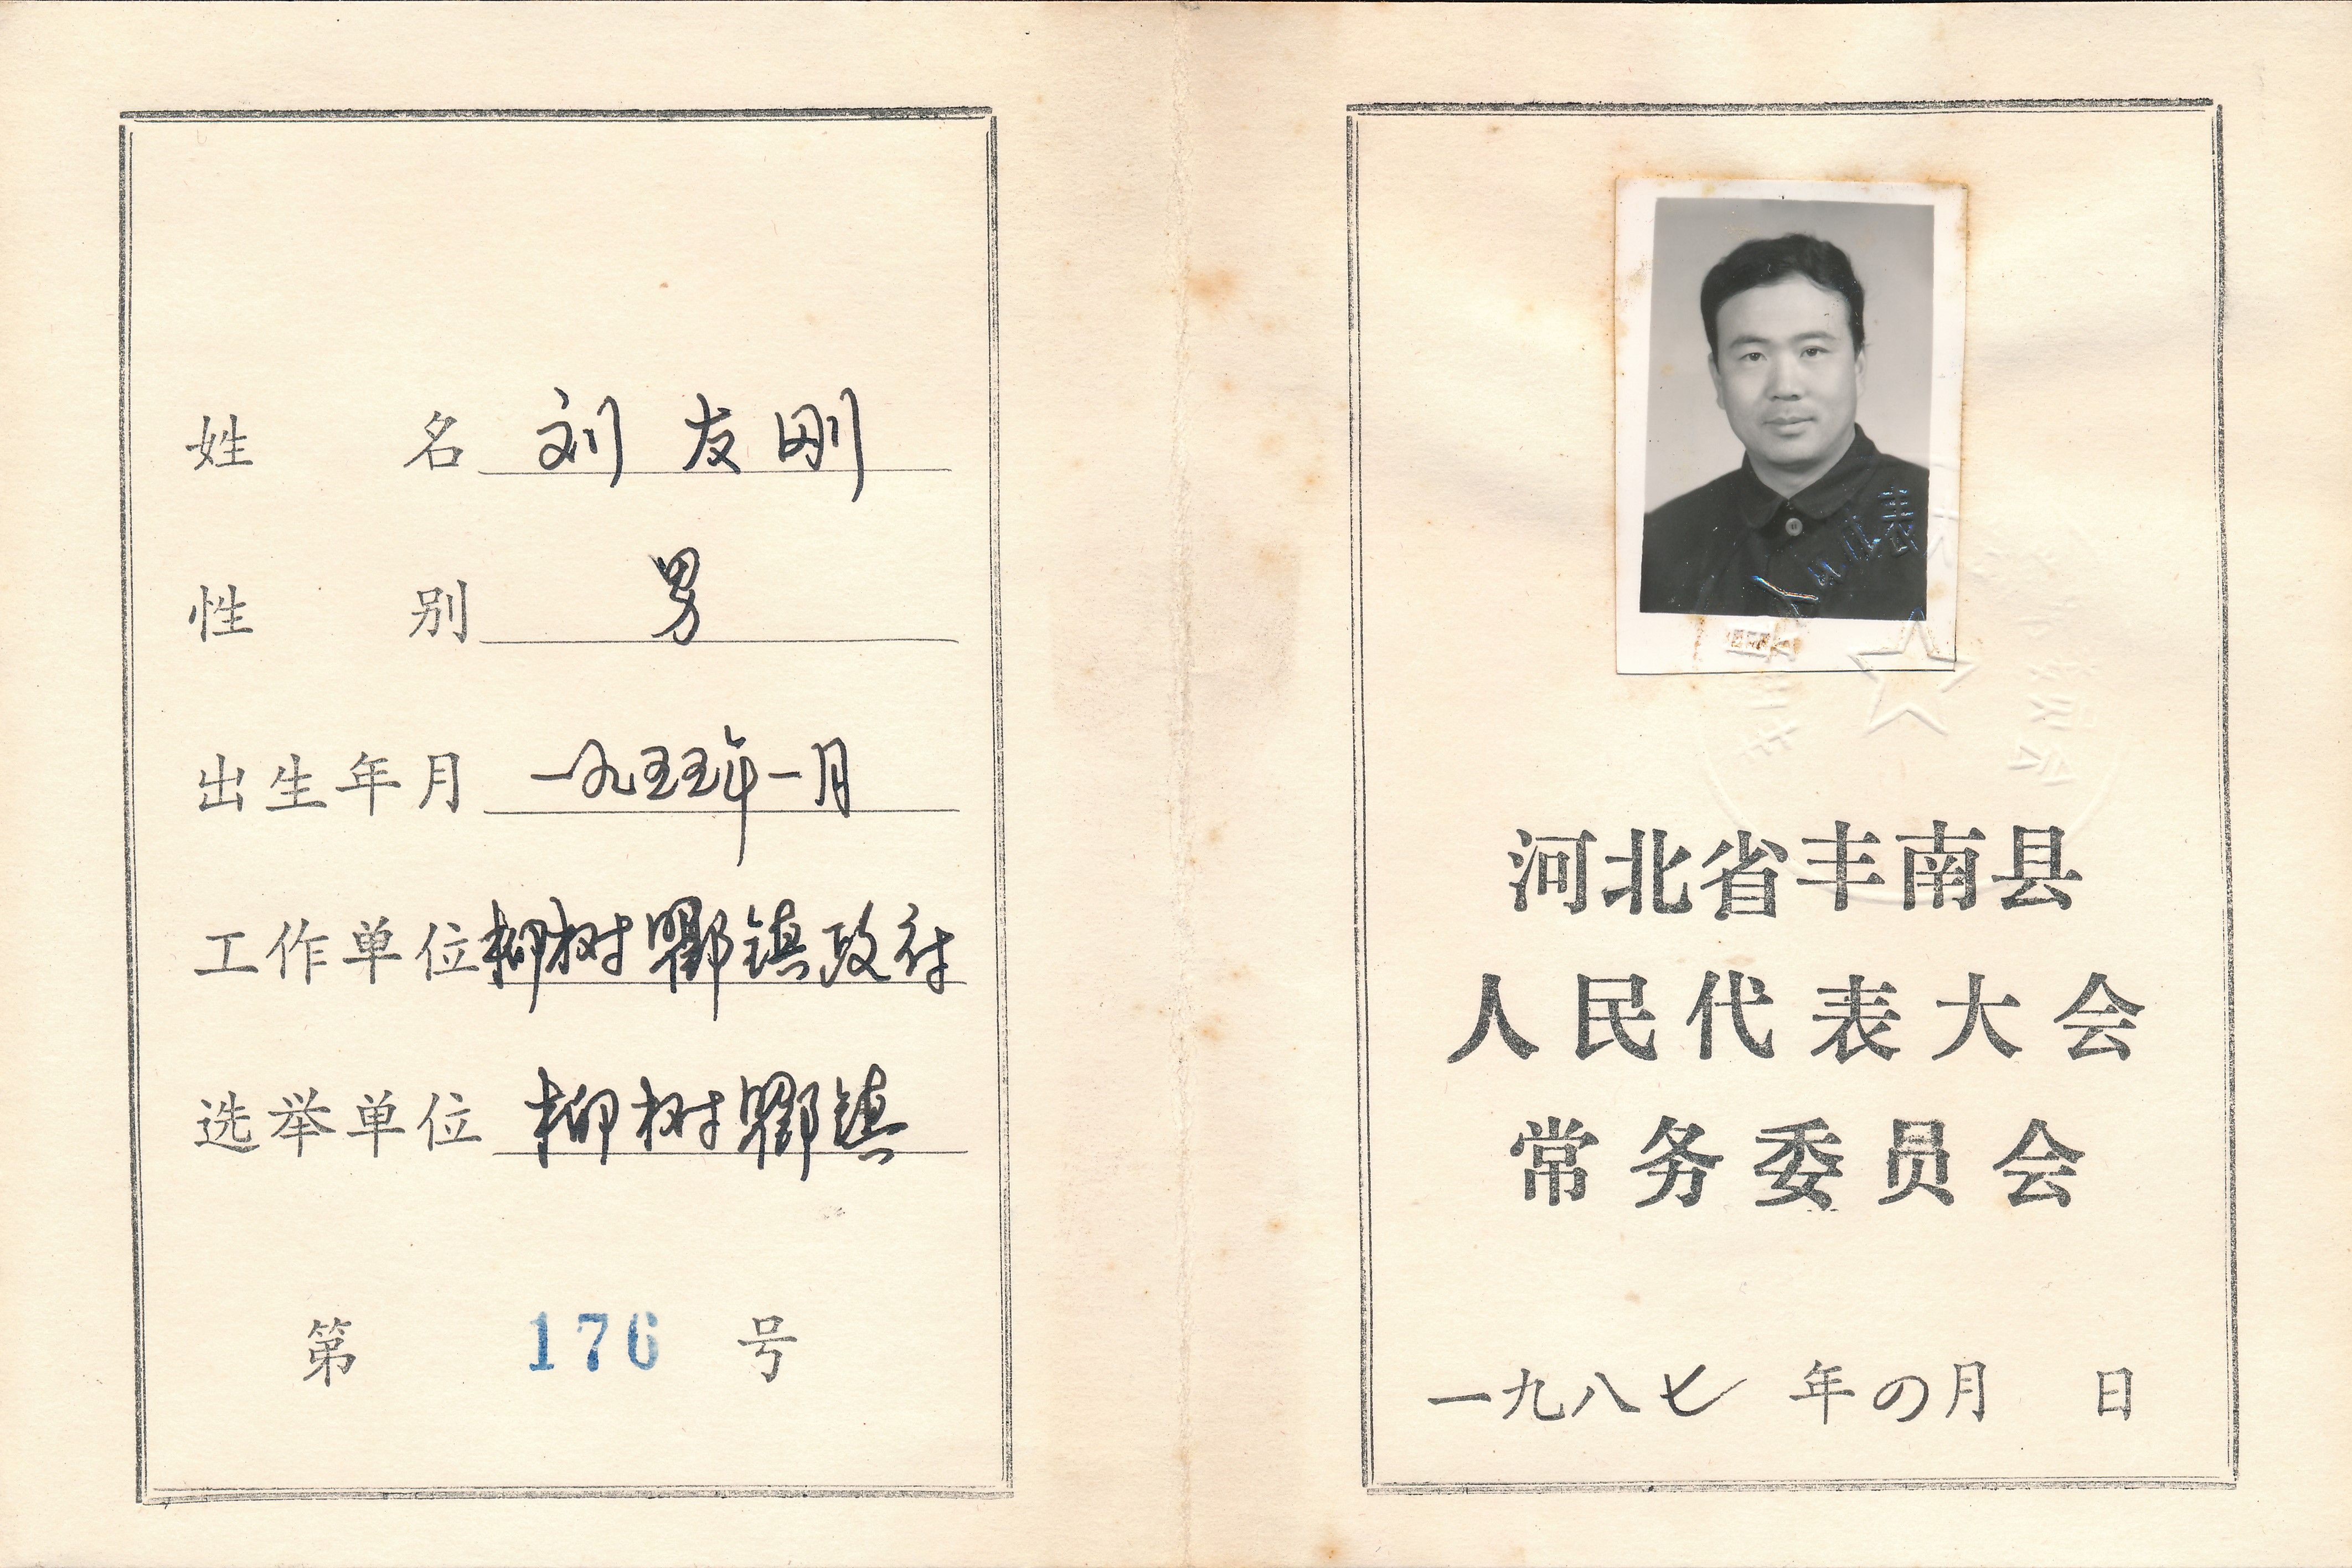 姓名 刘友刚
性别 男
出生年月 一九五五年一月
工作单位 柳树酄镇政府
选举单位 柳树酄镇
第 176 号
河北省丰南县
人民代表大会
常务委员会
一九八七年四月 日